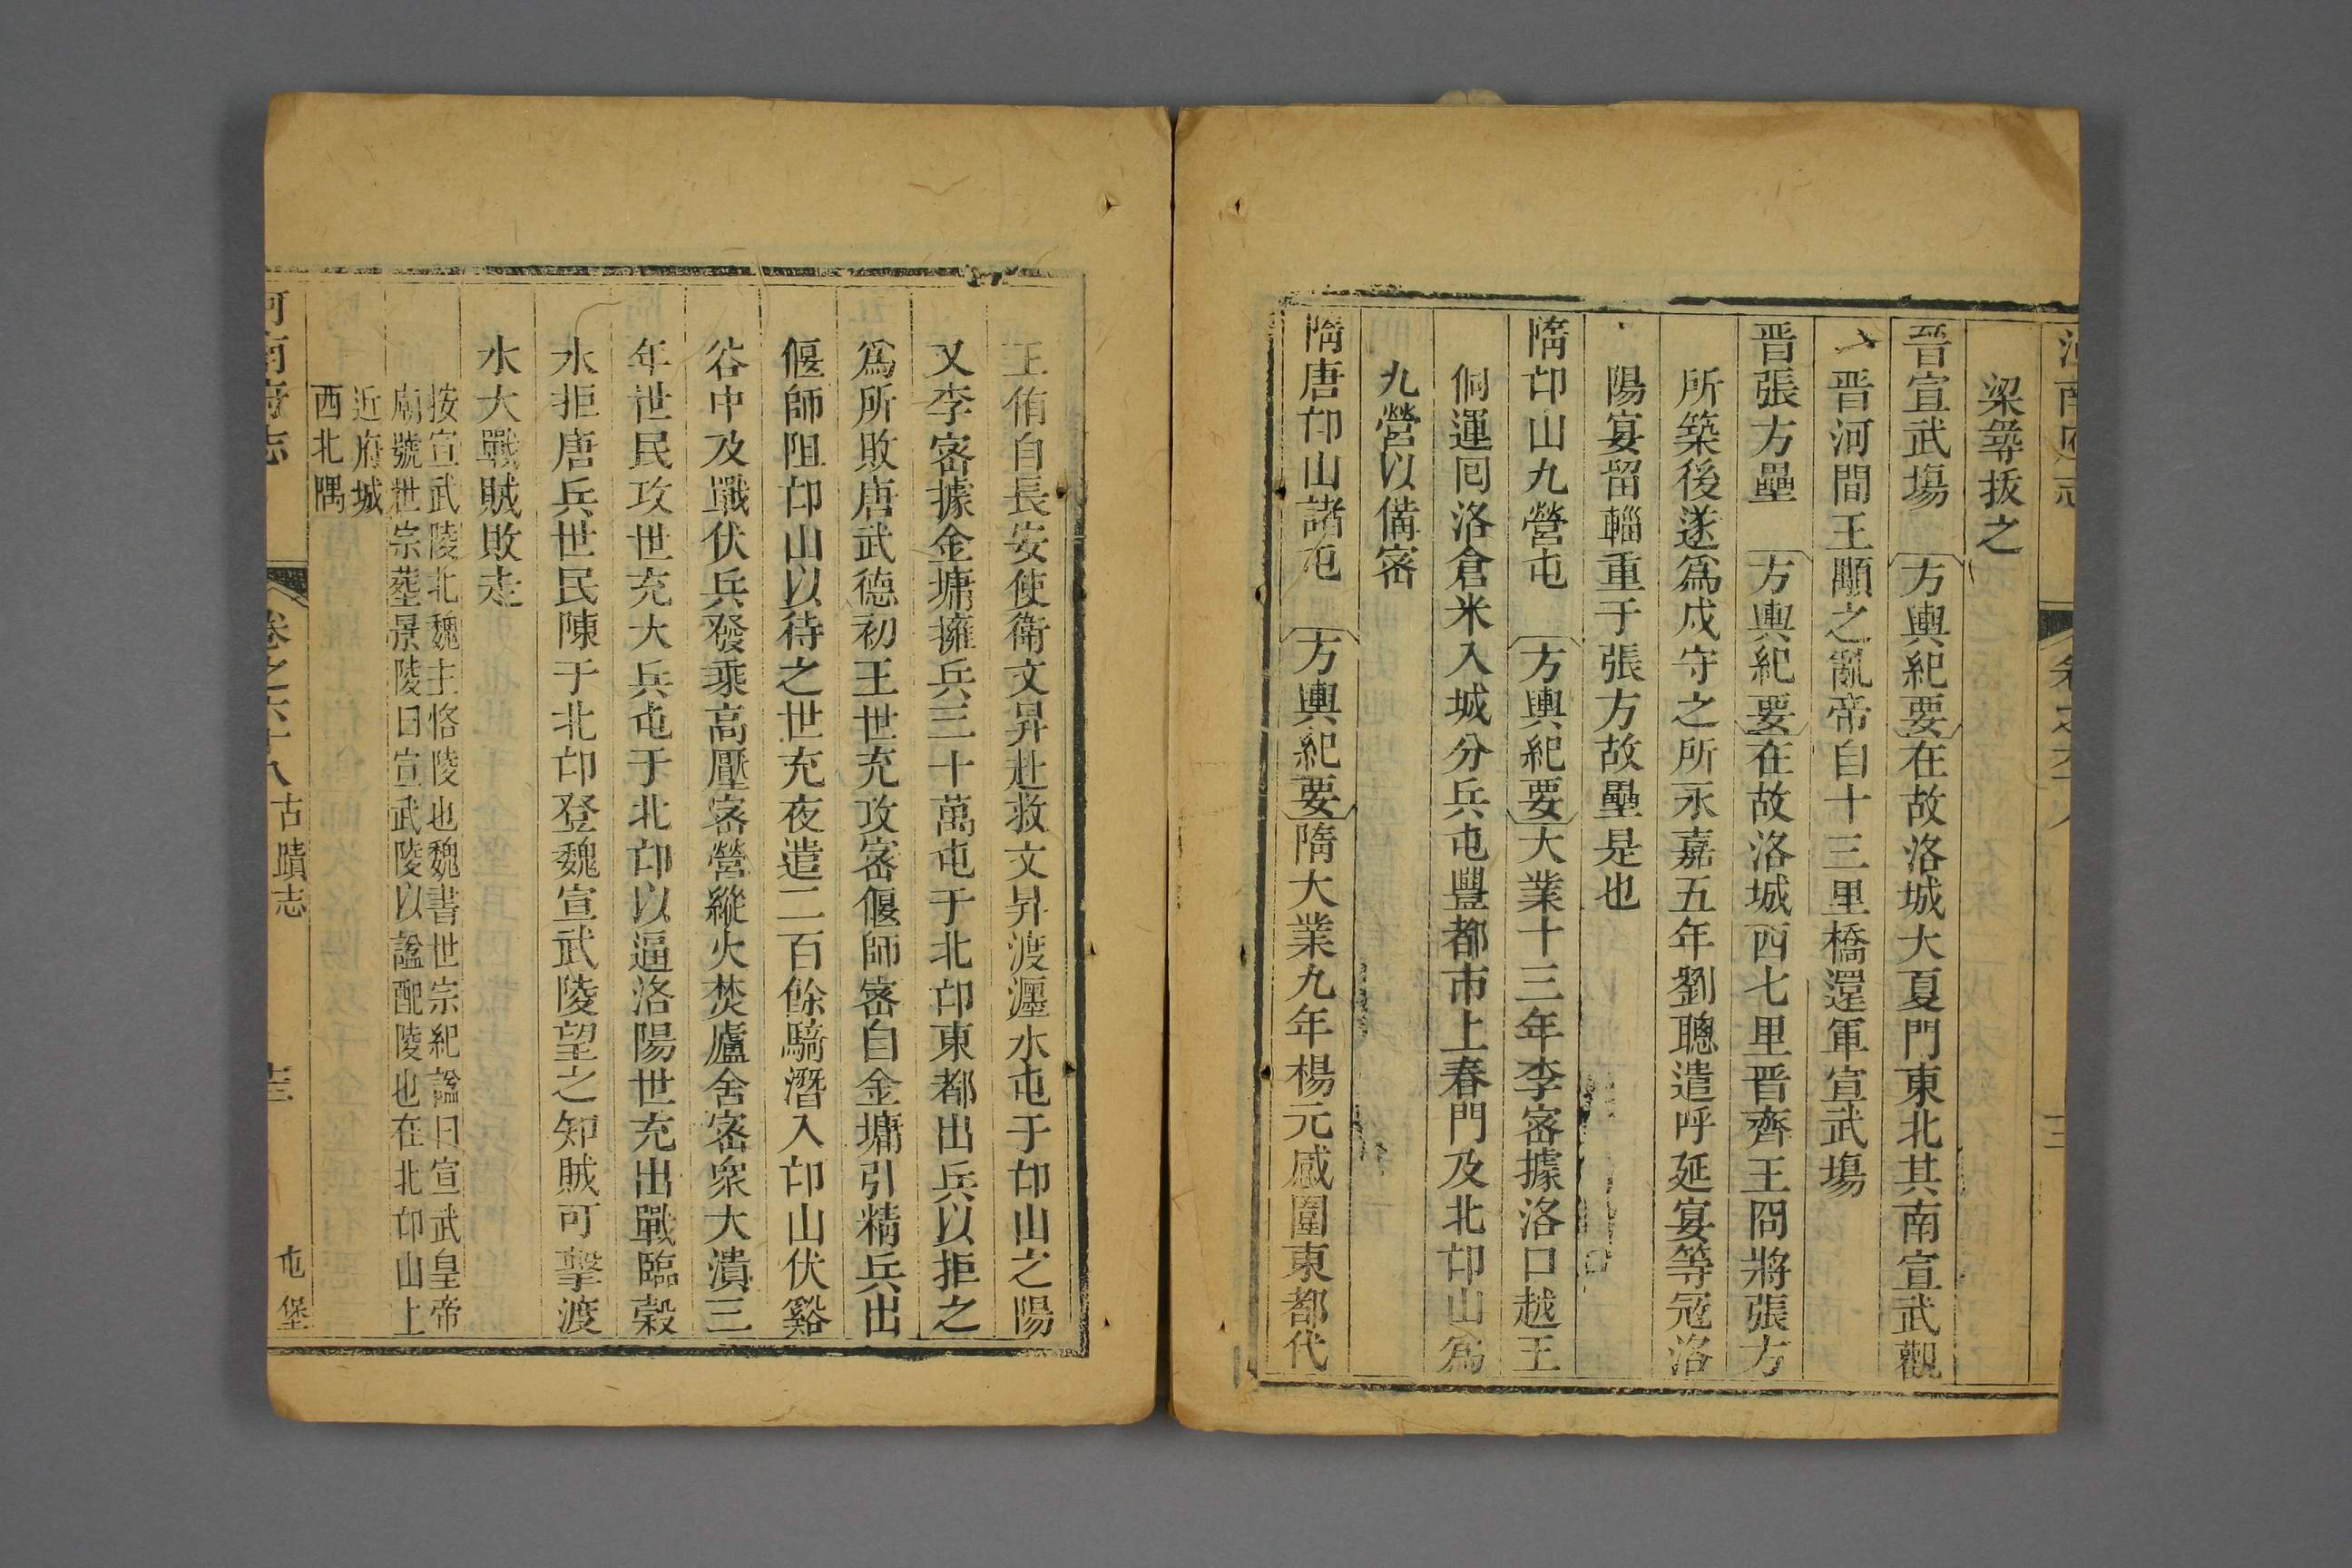 梁彝拔之
晋宣武塲 方輿紀要在故洛城大夏門東北其南宣武觀
晋河間王顒之亂帝自十三里橋還軍宣武塲
晋張方壘 方輿紀要在故洛城西七里晋齊王冏將張方
所築後遂爲戍守之所永嘉五年劉聰遣呼延宴等冦洛
陽宴留輜重于張方故壘是也
隋邙山九營屯 方輿紀要大業十三年李密據洛口越王
侗運囘洛倉米入城分兵屯豐都市上春門及北邙山爲
九營以備密
隋唐邙山諸屯 方輿紀要隋大業九年楊元感圍東都代
王侑自長安使衛文昇赴救文昇渡瀍水屯于邙山之陽
又李密據金墉擁兵三十萬屯于北邙東都出兵以拒之
爲所敗唐武德初王世充攻密偃師密自金墉引精兵出
偃師阻邙山以待之世充夜遣二百餘騎潛入邙山伏谿
谷中及戰伏兵發乘高壓密營縱火焚廬舍密衆大潰三
年世民攻世充大兵屯于北邙以逼洛陽世充出戰臨穀
水拒唐兵世民陳于北邙登魏宣武陵望之知賊可擊渡
水大戰賊敗走
按宣武陵北魏主恪陵也魏書世宗紀謚曰宣武皇帝
廟號世宗塟景陵曰宣武陵以謚配陵也在北邙山上
近府城
西北隅
河南府志 卷之六十八 古蹟志 屯堡